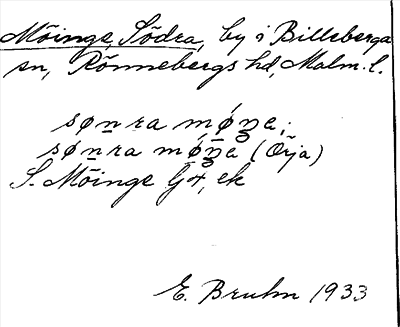 Möinge, Södra, by i Billeberga
sn, Rönnebergs hd, Malm. l.
sønra møŋe;
sønra møŋe (Örja)
S. Möinge G✝, ek
E. Bruhn 1933